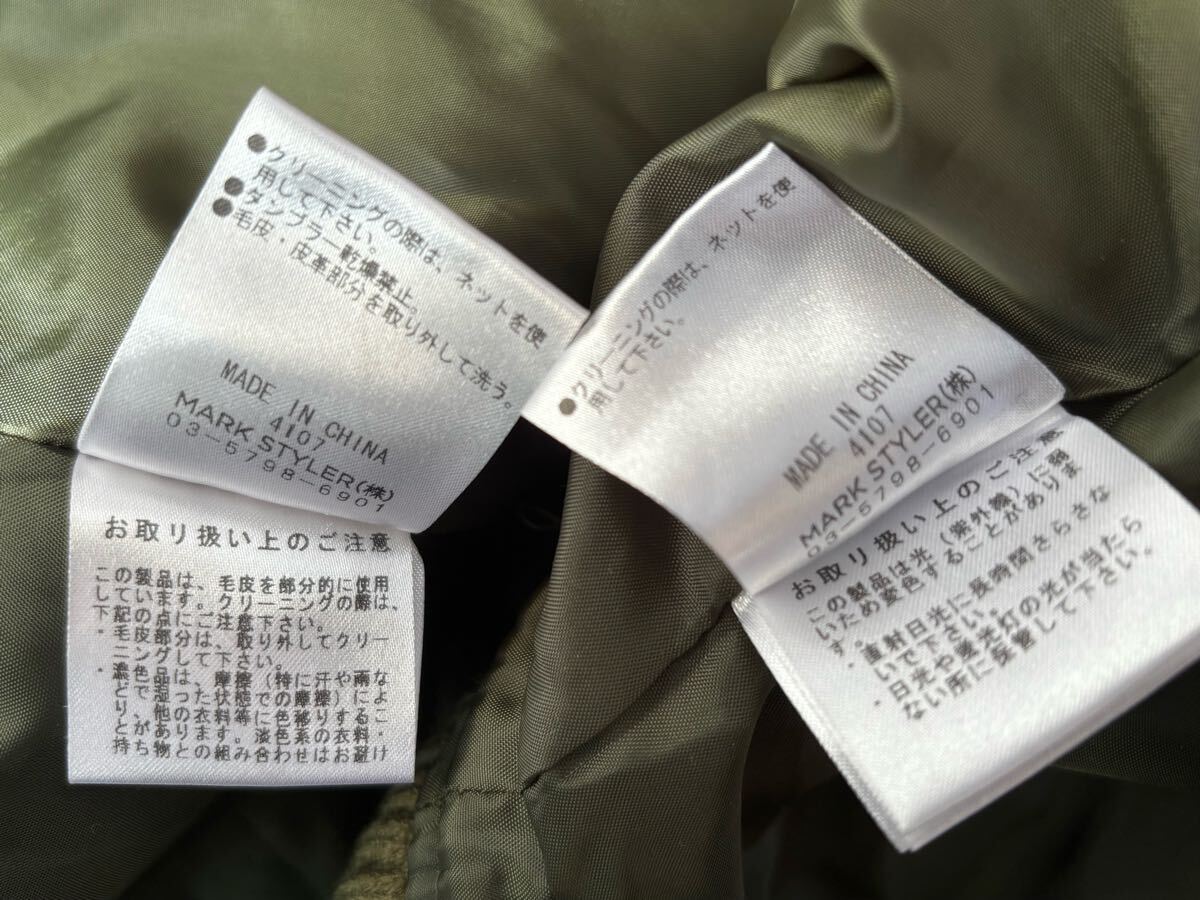 ●クリーニングの際は、ネットを使
用して下さい。
●タンブラー乾燥禁止。
●毛皮・皮革部分を取り外して洗う。
MADE IN CHINA
4107
MARK STYLER(株)
03-5798-6901
お取り扱い上のご注意
この製品は、毛皮を部分的に使用
しています。クリーニングの際は、
下記の点にご注意下さい。
・毛皮部分は、取り外してクリー
ニングして下さい。
・濃色品は、摩擦(特に汗や雨な
どで湿った状態での摩擦)によ
り、他の衣料等に色移りするこ
とがあります。淡色系の衣料・
持ち物との組み合わせはお避け
●クリーニングの際は、ネットを使
用して下さい。
MADE IN CHINA
4107
MARK STYLER(株)
03-5798-6901
お取り扱い上のご注意
この製品は光(紫外線)に弱
いため変色することがありま
す。
・直射日光に長時間さらさな
いで下さい。
・日光や蛍光灯の光が当たら
ない所に保管して下さい。